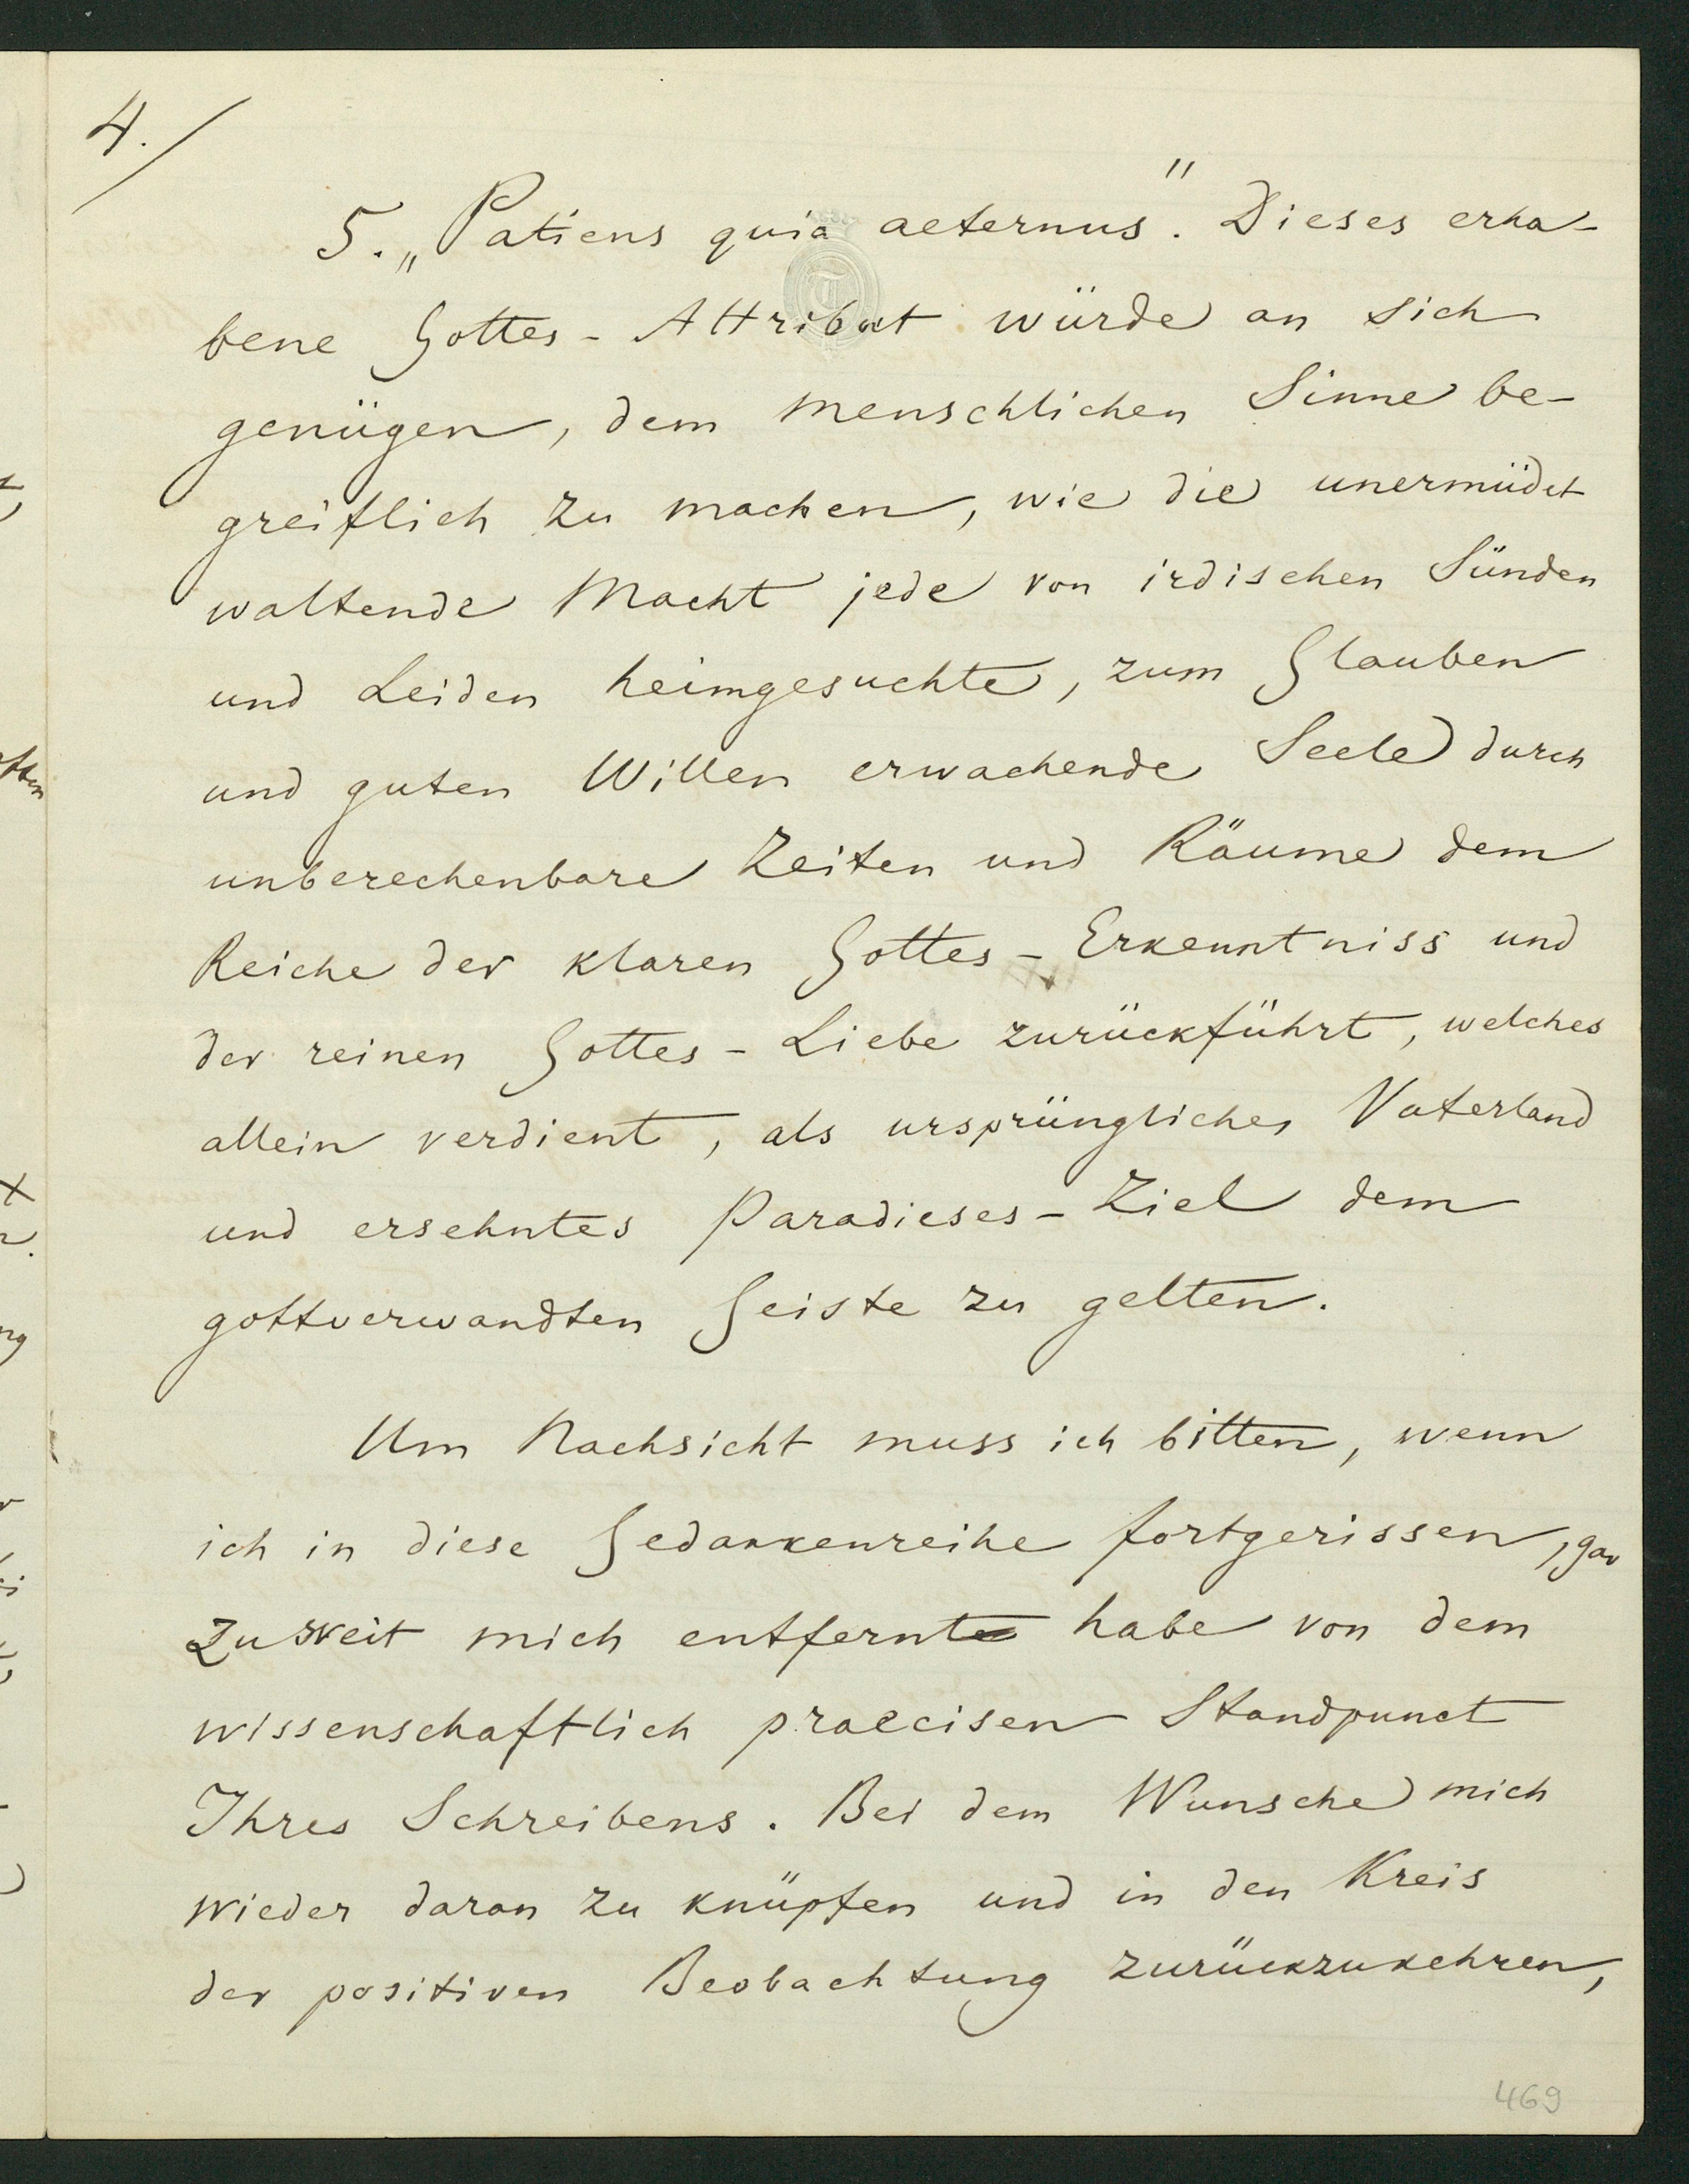 4./
5. „Patiens quia aeternus". Dieses erha-
bene Gottes-Attribut würde an sich
genügen, dem menschlichen Sinne be-
greiflich zu machen, wie die unermüdet
waltende Macht jede von irdischen Sünden
und Leiden heimgesuchte, zum Glauben
und guten Willen erwachende Seele durch
unberechenbare Zeiten und Räume dem
Reiche der klaren Gottes-Erkenntniss und
der reinen Gottes-Liebe zurückführt, welches
allein verdient, als ursprüngliches Vaterland
und ersehntes Paradieses-Ziel dem
gottverwandten Geiste zu gelten.
Um Nachsicht muss ich bitten, wenn
ich in diese Gedankenreihe fortgerissen, gar
zuweit mich entfernt habe von dem
wissenschaftlich praecisen Standpunct
Ihres Schreibens. Bei dem Wunsche mich
wieder daran zu knüpfen und in den Kreis
der positiven Beobachtung zurückzukehren,
469